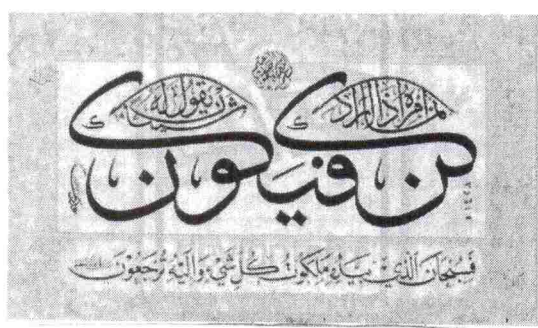 إنما أمره إذا أراد شيئا أن يقول له
كن فيكون
فسبحان الذي بيده ملكوت كل شيء وإليه ترجعون